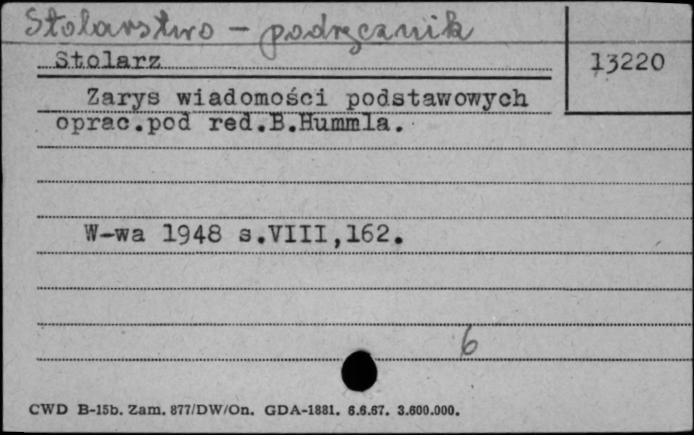 Stolarstwo - podręcznik
Stolarz
13220
Zarys wiadomości podstawowych
oprac.pod red.B.Hummla.
W-wa 1948 s.VIII,162.
6
CWD B-15b. Zam. 877/DW/On. GDA-1881. 6.6.67. 3.600.000.